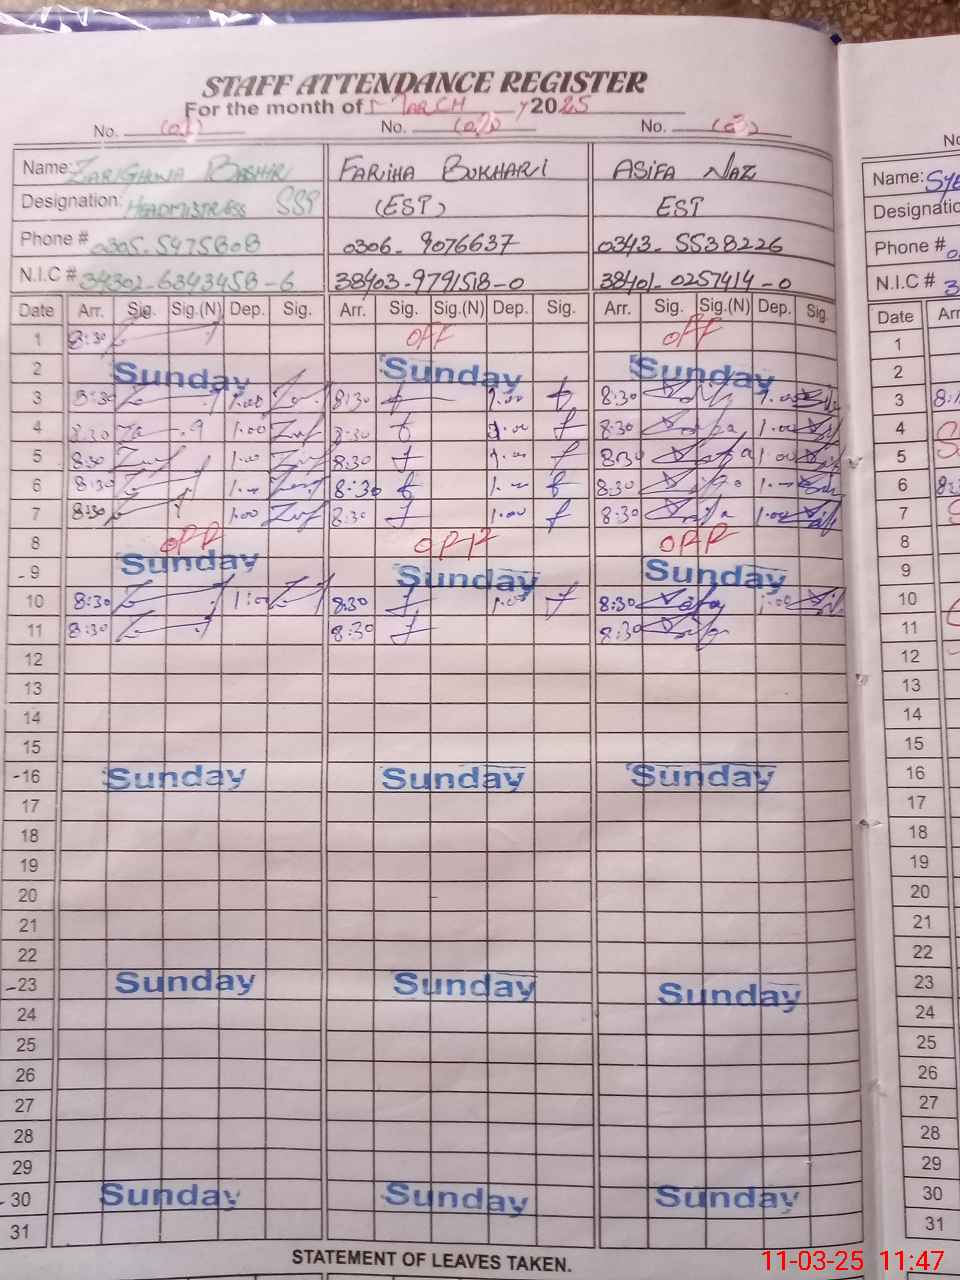 STAFF ATTENDANCE REGISTER
For the month of MARCH 2025
No. (01) No. (02) No. (03)
Name: ZARIGHUNA BASHIR FARIHA BUKHARI ASIFA NAZ
Designation: HEADMISTRESS SST (EST) EST
Phone # 0305-5975808 0306-9076637 0343-5538226
N.I.C # 34302-6343458-6 38403-9791518-0 38401-0257414-0
Date Arr. Sig. Sig.(N) Dep. Sig. Arr. Sig. Sig.(N) Dep. Sig. Arr. Sig. Sig.(N) Dep. Sig.
1 8:30 OFF OFF
2 Sunday Sunday Sunday
3 8:30 1.00 8:30 1.00 8:30 1.00
4 8:30 1.00 8:30 1.00 8:30 1.00
5 8:30 1.00 8:30 1.00 8:30 1.00
6 8:30 1.00 8:30 1.00 8:30 1.00
7 8:30 1.00 8:30 1.00 8:30 1.00
8 OFF OFF OFF
-9 Sunday Sunday Sunday
10 8:30 1:00 8:30 1.00 8:30 1.00
11 8:30 8:30 8:30
12
13
14
15
-16 Sunday Sunday Sunday
17
18
19
20
21
22
-23 Sunday Sunday Sunday
24
25
26
27
28
29
-30 Sunday Sunday Sunday
31
STATEMENT OF LEAVES TAKEN.
Name:
Phone #
N.I.C # 3
Date
1
2
3
4
5
6
7
8
9
10
11
12
13
14
15
16
17
18
19
20
21
22
23
24
25
26
27
28
29
30
31
11-03-25 11:47